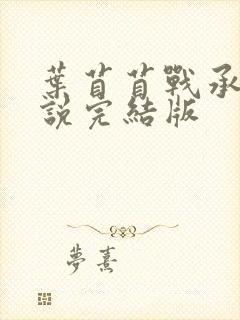 葉苜苜戰承
說完結版
夢熹